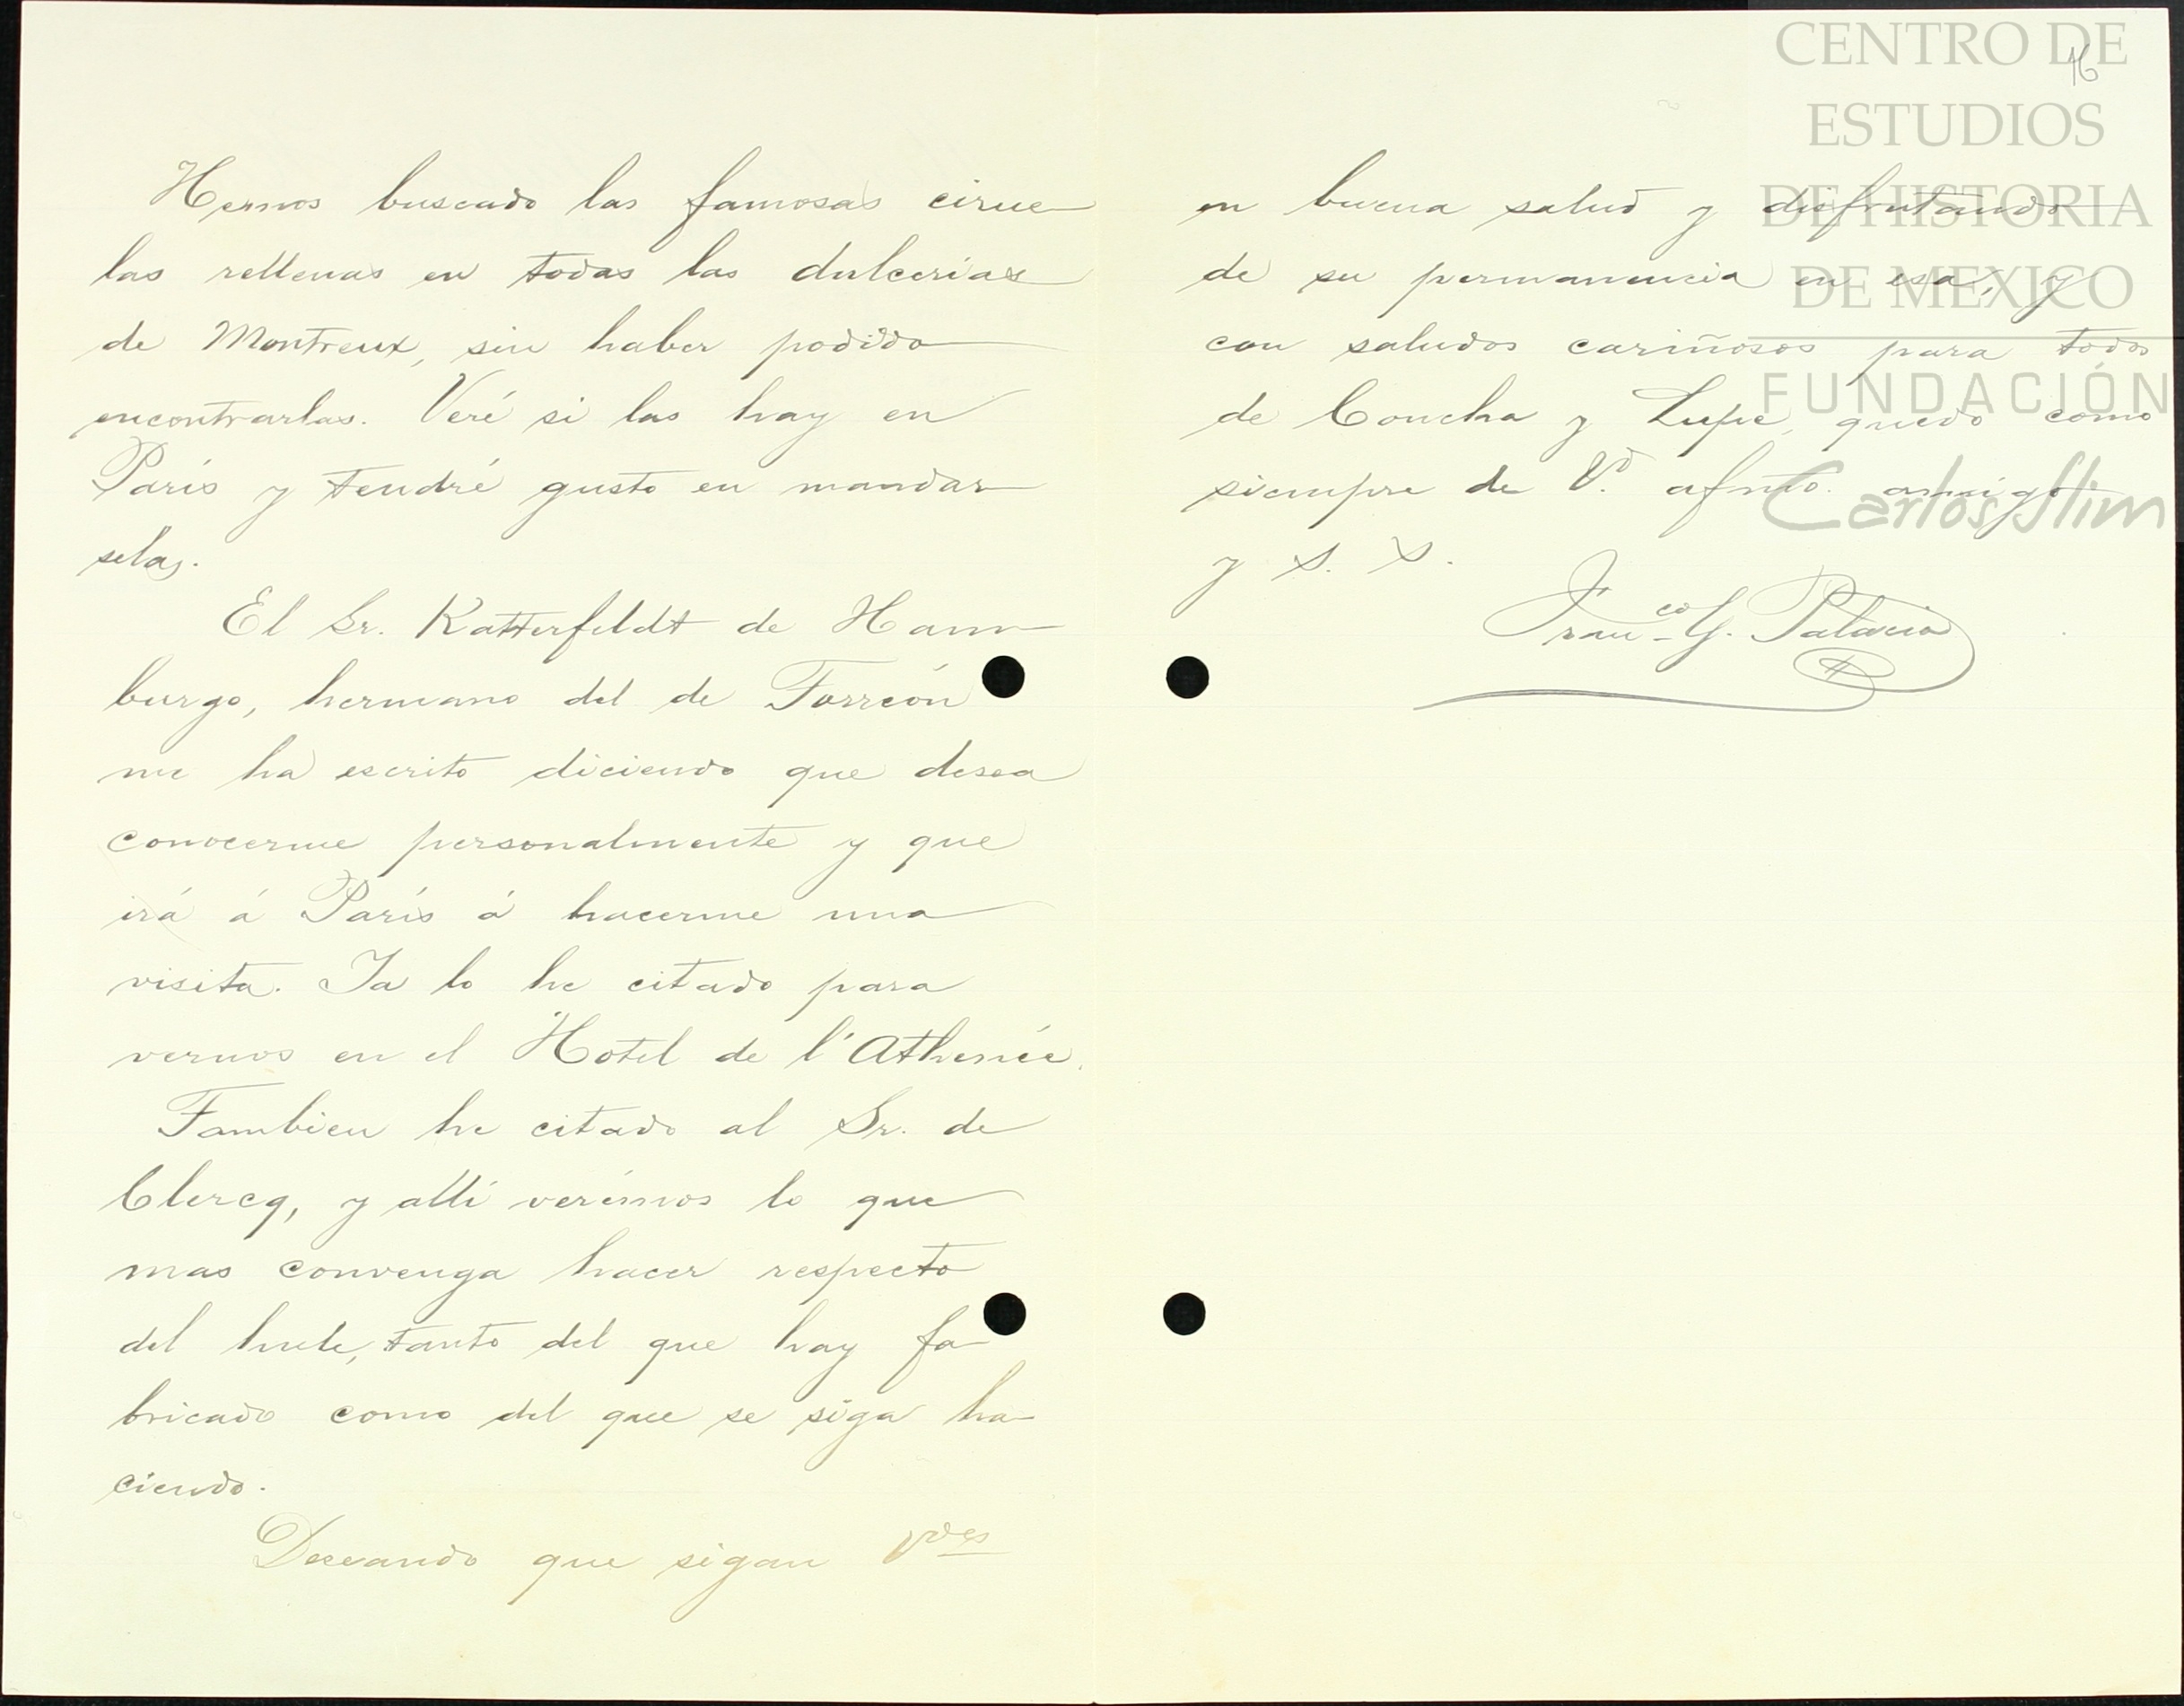 Hemos buscado las famosas cirue
las rellenas en todas las dulcerías
de Montreux, sin haber podido
encontrarlas. Veré si las hay en
París y tendré gusto en mandar
selas.
El Sr. Katterfeldt de Ham
burgo, hermano del de Torreón
me ha escrito diciendo que desea
conocerme personalmente y que
irá á París á hacerme una
visita. Ya lo he citado para
vernos en el Hotel de l'Athenée.
Tambien he citado al Sr. de
Clercq, y allí verémos lo que
mas convenga hacer respecto
del hule, tanto del que hay fa
bricado como del que se siga ha
ciendo.
Deseando que sigan Vdes
16
en buena salud y disfrutando
de su permanencia en esa, y
con saludos cariñosos para todos
de Concha y Lupe, quedo como
siempre de Vd. afmo. amigo
y S. S.
Franco G. Palacio
CENTRO DE
ESTUDIOS
DE HISTORIA
DE MEXICO
FUNDACIÓN
Carlos Slim